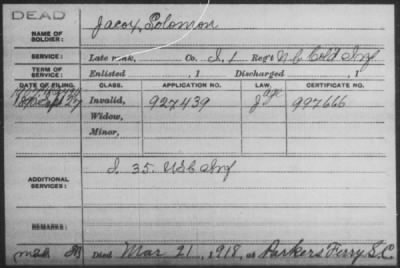 DEAD
NAME OF SOLDIER: Jacox, Solomon
SERVICE: Late rank, Co. I, 1 Reg't N.C. Cold Inf
TERM OF SERVICE: Enlisted , 1 Discharged , 1
DATE OF FILING. CLASS. APPLICATION NO. LAW. CERTIFICATE NO.
Sept 27 Invalid, 927439 997666
Widow,
Minor,
ADDITIONAL SERVICES: I 35. USC Inf
REMARKS:
Died Mar 21, 1918, at Parkers Ferry S.C